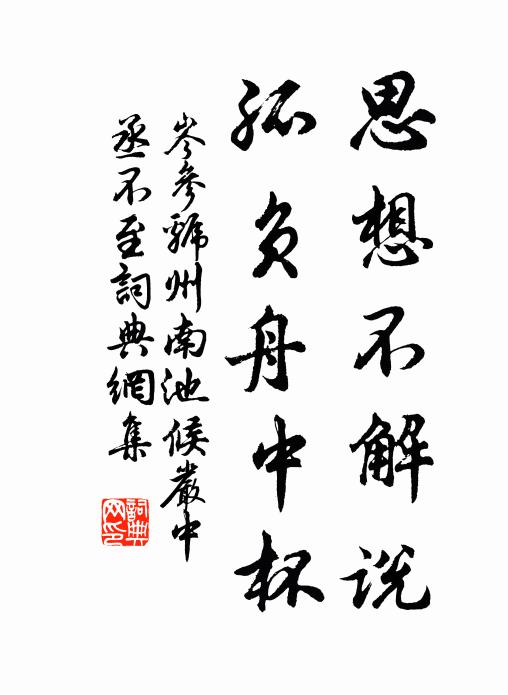 思想不解说
孤负舟中杯
岑參虢州南池候嚴中
丞不至詞典網集
詞典
网印